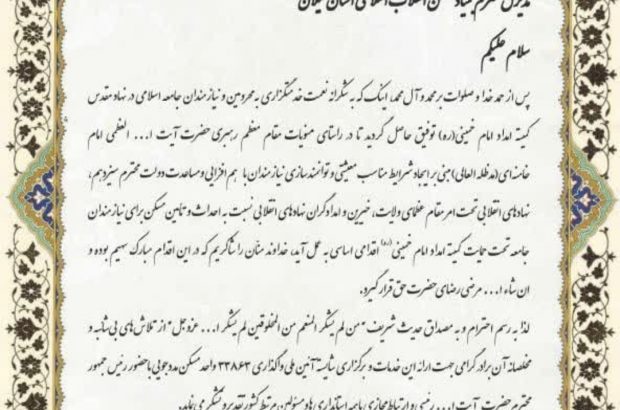 مدیرکل محترم بنیاد مسکن انقلاب اسلامی استان گیلان
سلام علیکم
پس از حمد خدا و صلوات بر محمد و آل محمد، اینک که به شکرانه نعمت خدمتگزاری به محرومین و نیازمندان جامعه اسلامی در نهاد مقدس
کمیته امداد امام خمینی(ره) توفیق حاصل گردید تا در راستای منویات مقام معظم رهبری حضرت آیت ا... العظمی امام
خامنه‌ای (مدظله العالی) مبنی بر ایجاد شرایط مناسب معیشتی و توانمندسازی نیازمندان با هم افزایی و مساعدت دولت محترم سیزدهم،
نهادهای انقلابی تحت امر مقام عظمای ولایت، خیرین و امدادگران نهادهای انقلابی نسبت به احداث و تامین مسکن برای نیازمندان
جامعه تحت حمایت کمیته امداد امام خمینی(ره) اقدامی اساسی به عمل آید، خداوند منان را شاکریم که در این اقدام مبارک سهیم بوده و
ان شاء ا... مرضی رضای حضرت حق قرار گیرد.
لذا به رسم احترام و به مصداق حدیث شریف "من لم یشکر المنعم من المخلوقین لم یشکر ا... عزوجل" از تلاش های بی شائبه و
مخلصانه آن برادر گرامی جهت ارائه این خدمات و برگزاری شایسته آئین ملی واگذاری ۳۳۸۶۳ واحد مسکن مددجویی با حضور رئیس جمهور
محترم حضرت آیت ا... رئیسی و ارتباط مجازی با همه استانداری ها و مسئولین مرتبط کشور تقدیر و تشکر می نماید.